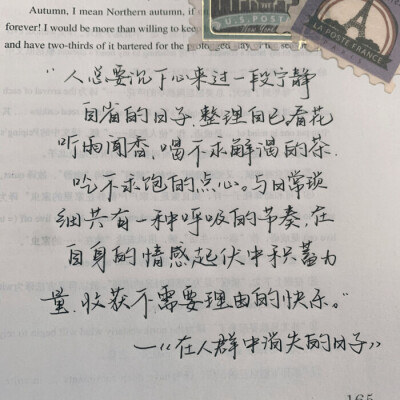 Autumn, I mean Northern autumn, if
forever! I would be more than willing to
and have two-thirds of it bartered for the
U.S. POST
LA POSTE FRANCE
"人总要沉下心来过一段宁静
自省的日子,整理自己,看花
听雨闻香,喝不求解渴的茶,
吃不求饱的点心。与日常琐
细共有一种呼吸的节奏,在
自身的情感起伏中积蓄力
量,收获不需要理由的快乐。"
—《在人群中消失的日子》
165